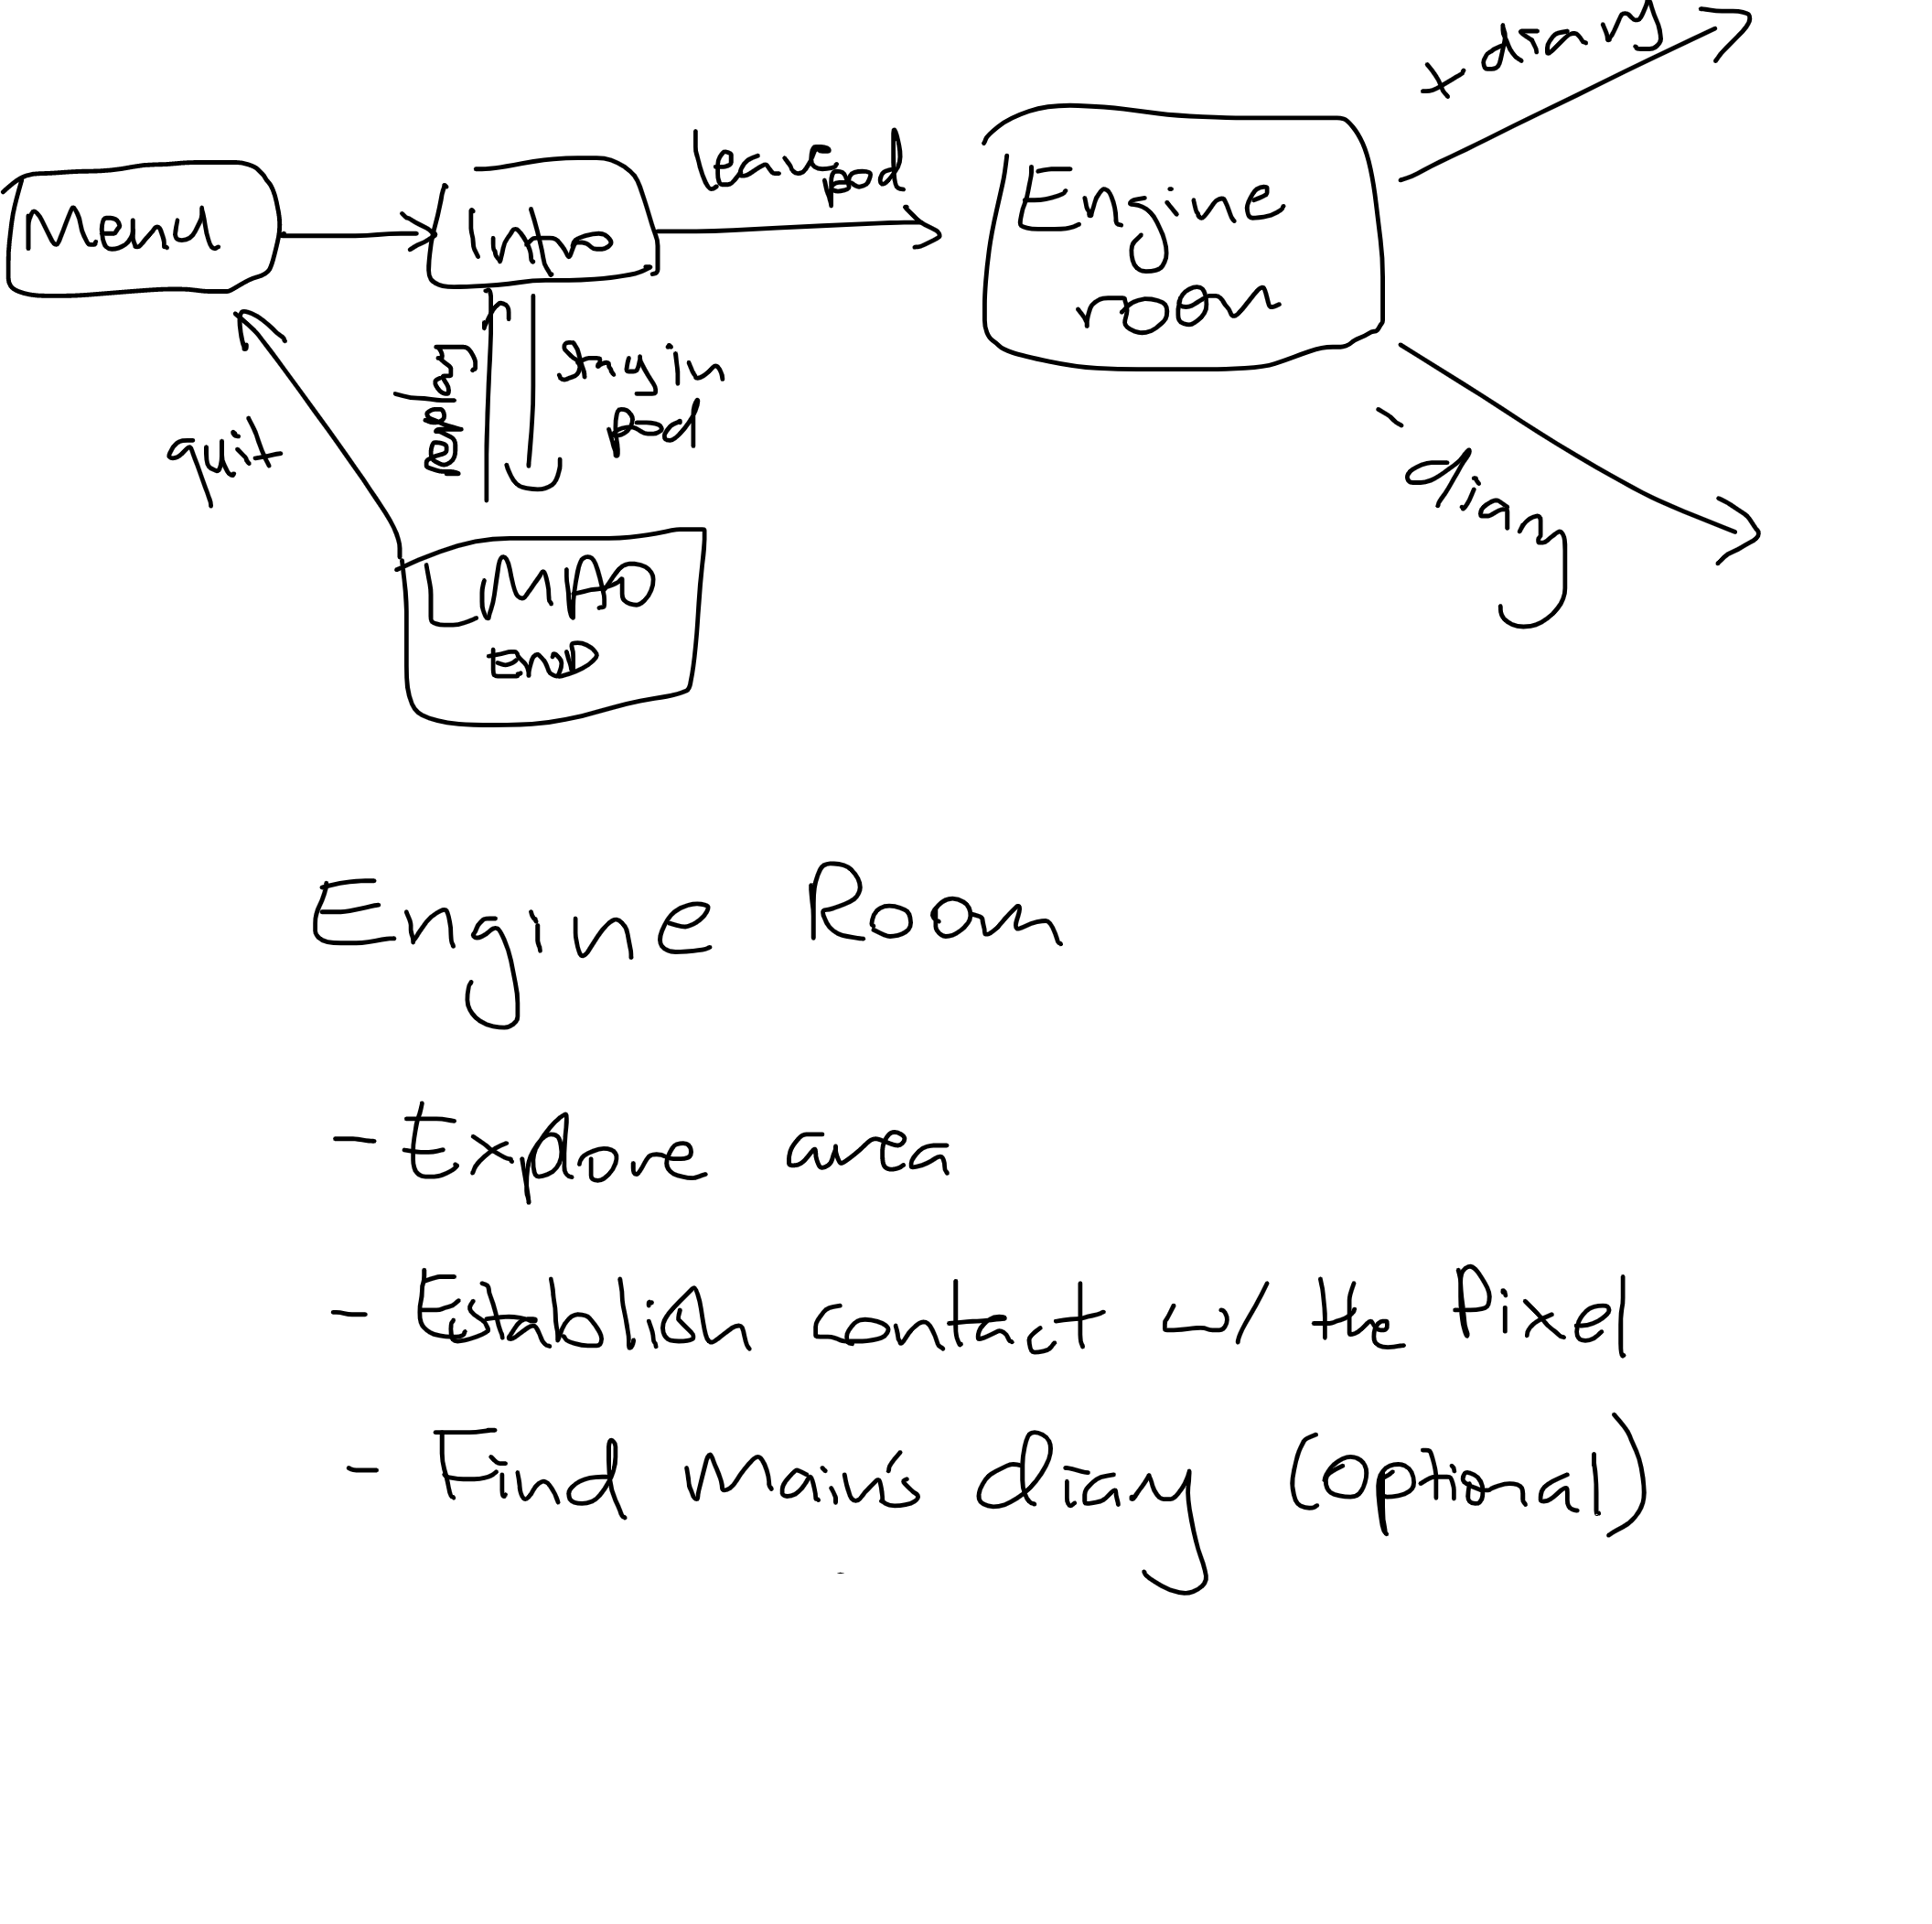 + diary
Menu
Intro
leave
pod
Engine
room
stay in
pod
quit
- diary
LMAO
END
Engine Room
- Explore area
- Establish contact w/ the Pixel
- Find Main's diary (optional)